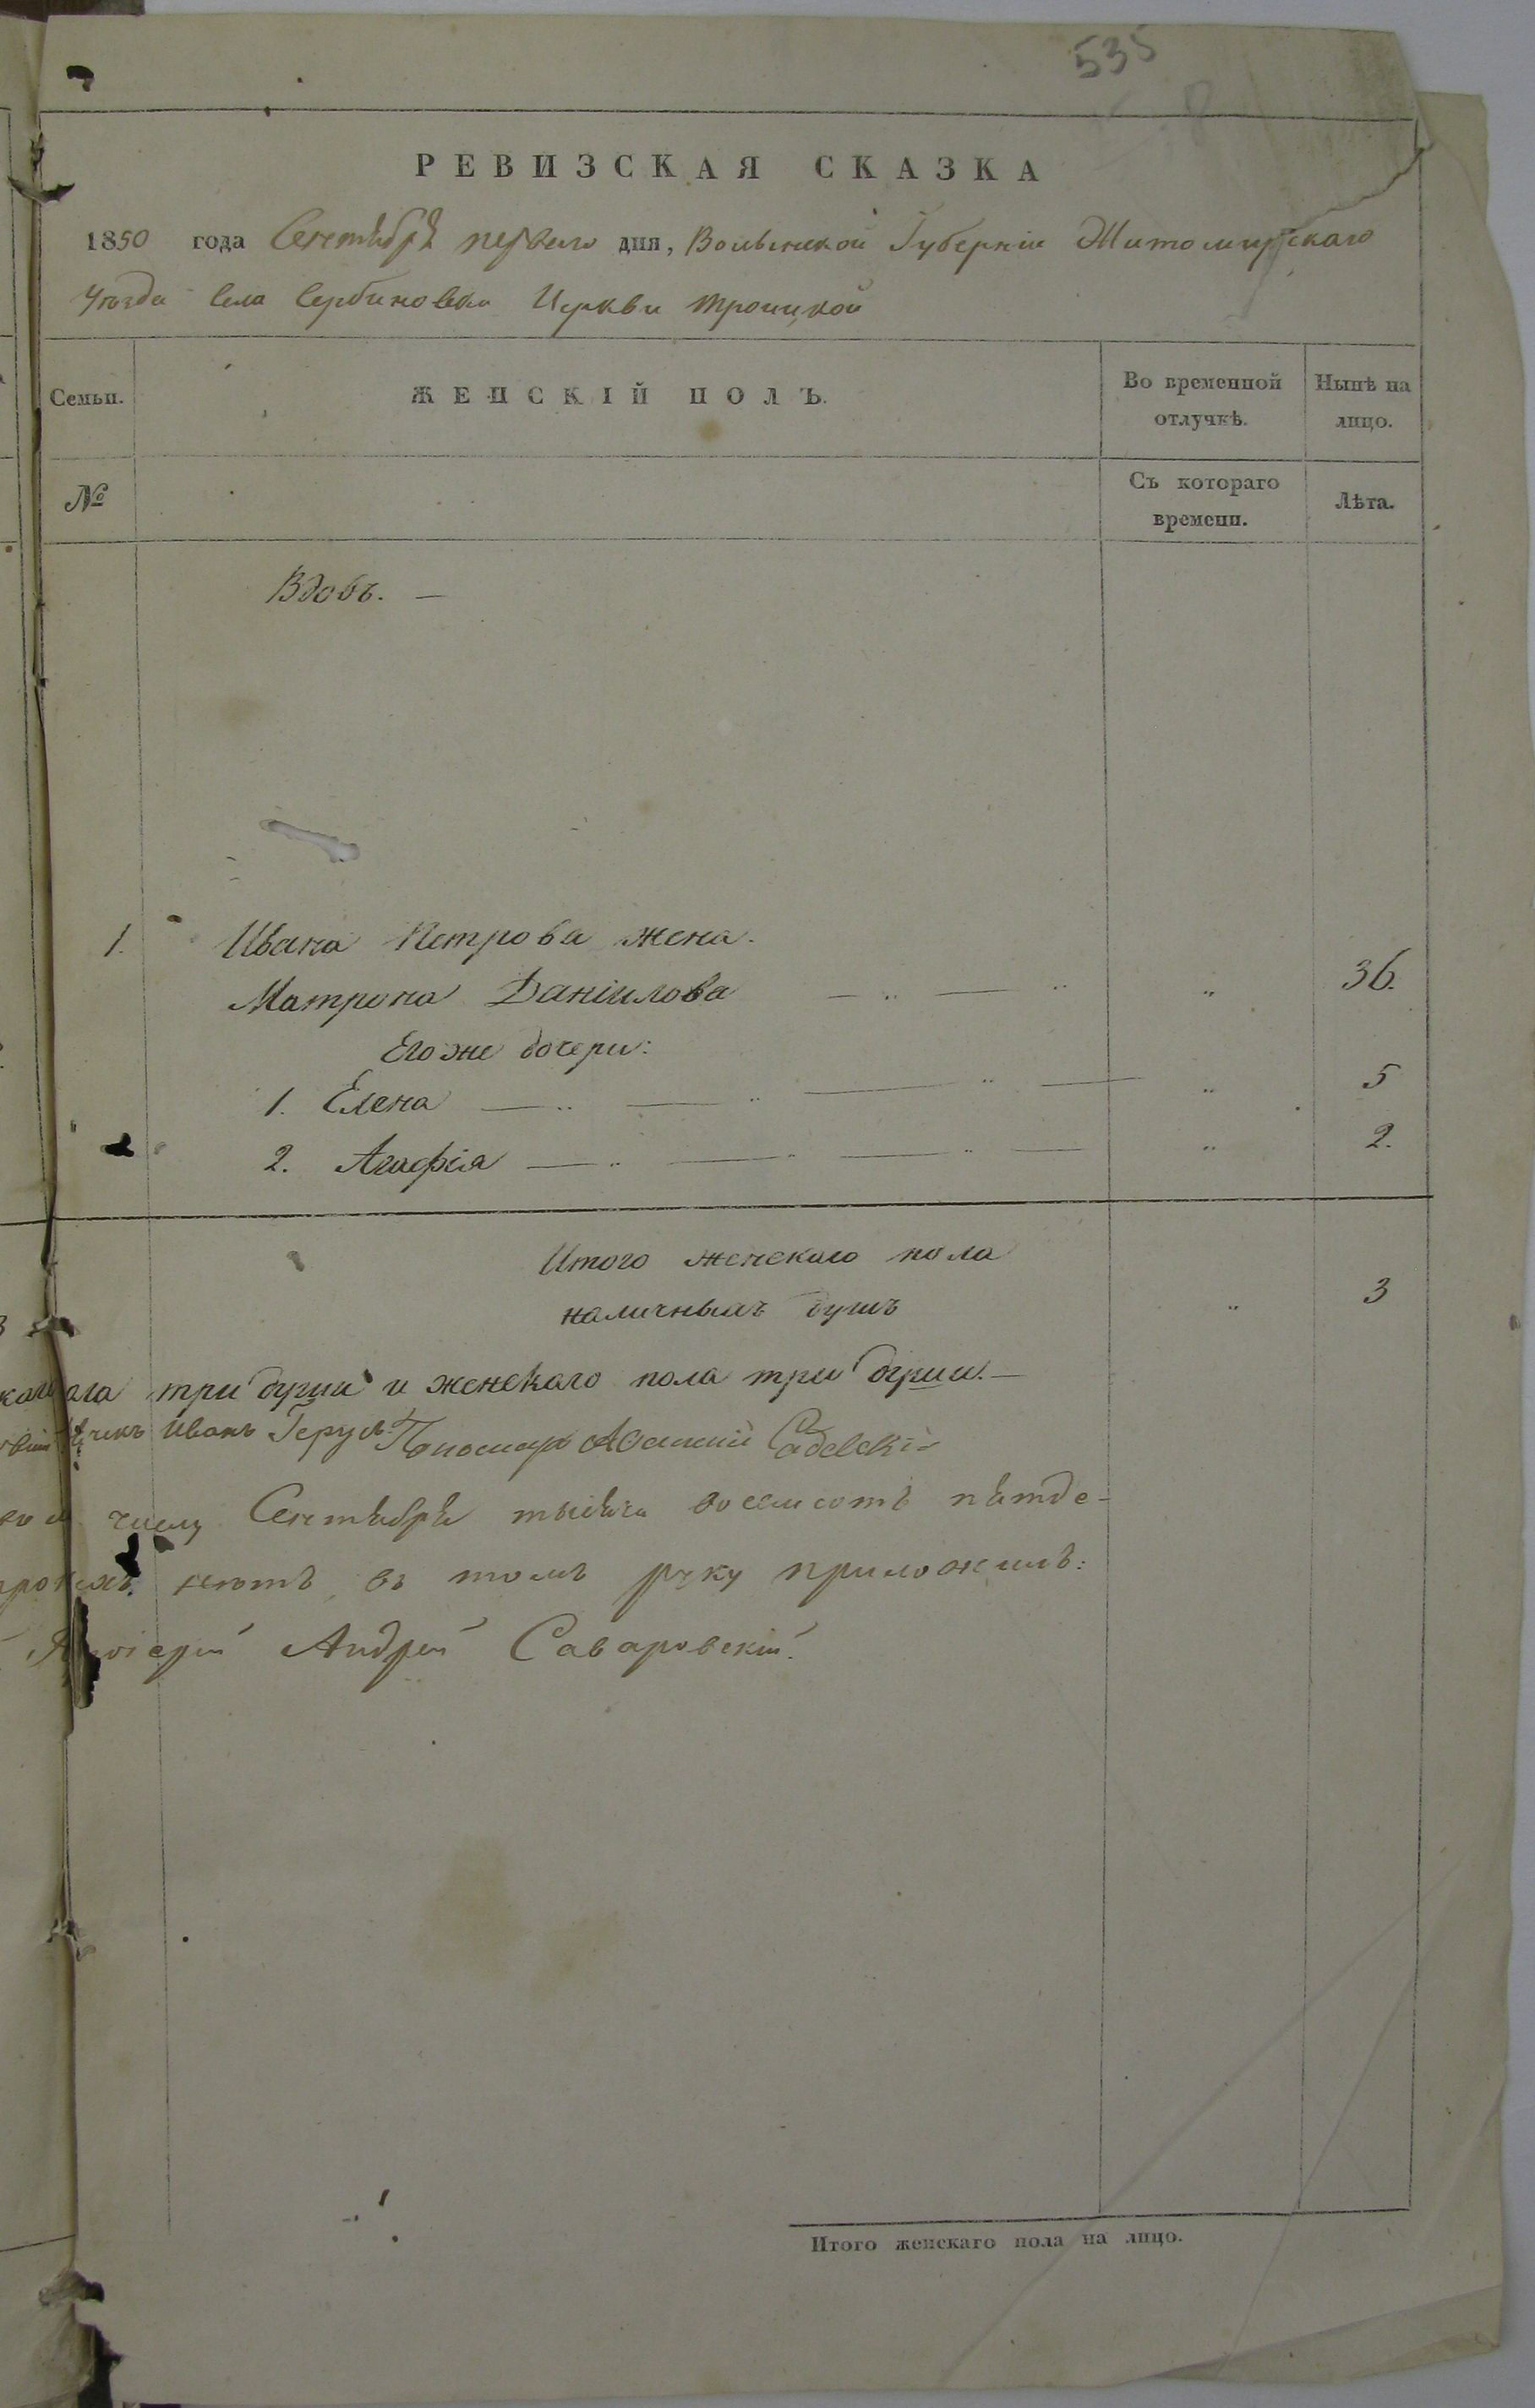 535
РЕВИЗСКАЯ СКАЗКА
1850 года Сентября перваго дня, Волынской Губернии Житомирскаго
Уезда Села Сербиновки Церкви Троицкой
Семьи. ЖЕНСКІЙ ПОЛЪ. Во временной отлучкѣ. Нынѣ на лицо.
№ Съ котораго времени. Лѣта.
Вдовъ. —
1. Ивана Петрова жена.
Матрона Даніилова — „ — „ „ 36.
Его же дочери:
1. Елена — „ — „ — „ — „ 5
2. Агафія — „ — „ — „ — „ 2.
Итого женскаго пола
наличныхъ душъ „ 3
три души и женскаго пола три души. —
Иванъ Пономарь
числу Сентября тысяча восемсотъ пятьде-
нетъ въ томъ руку приложилъ:
Андрей Саваровскій.
Итого женскаго пола на лицо.